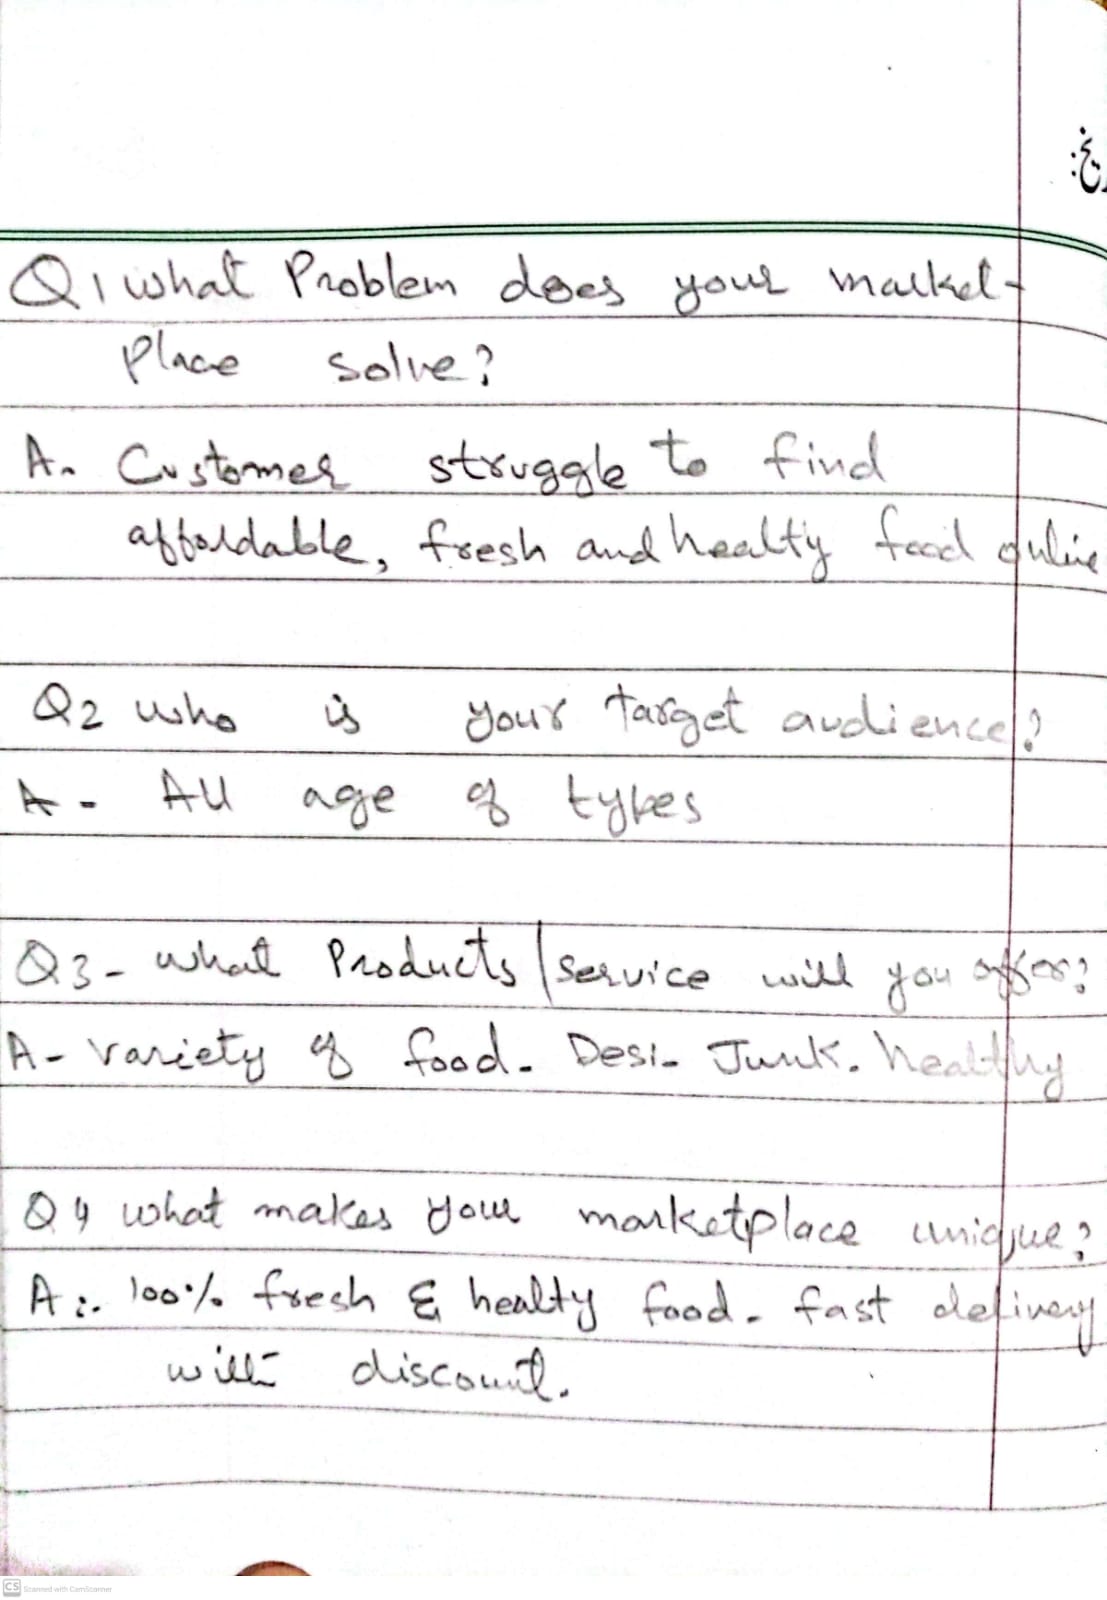 یخ:
Q1 what Problem does your market-
Place solve?
A. Customer struggle to find
affordable, fresh and healty food online
Q2 who is your target audience?
A- All age of types
Q3- what Products/service will you offer?
A- variety of food. Desi- Junk. healthy
Q4 what makes your marketplace unique?
A:. 100% fresh & healty food. fast delivery
with discount.
CS Scanned with CamScanner